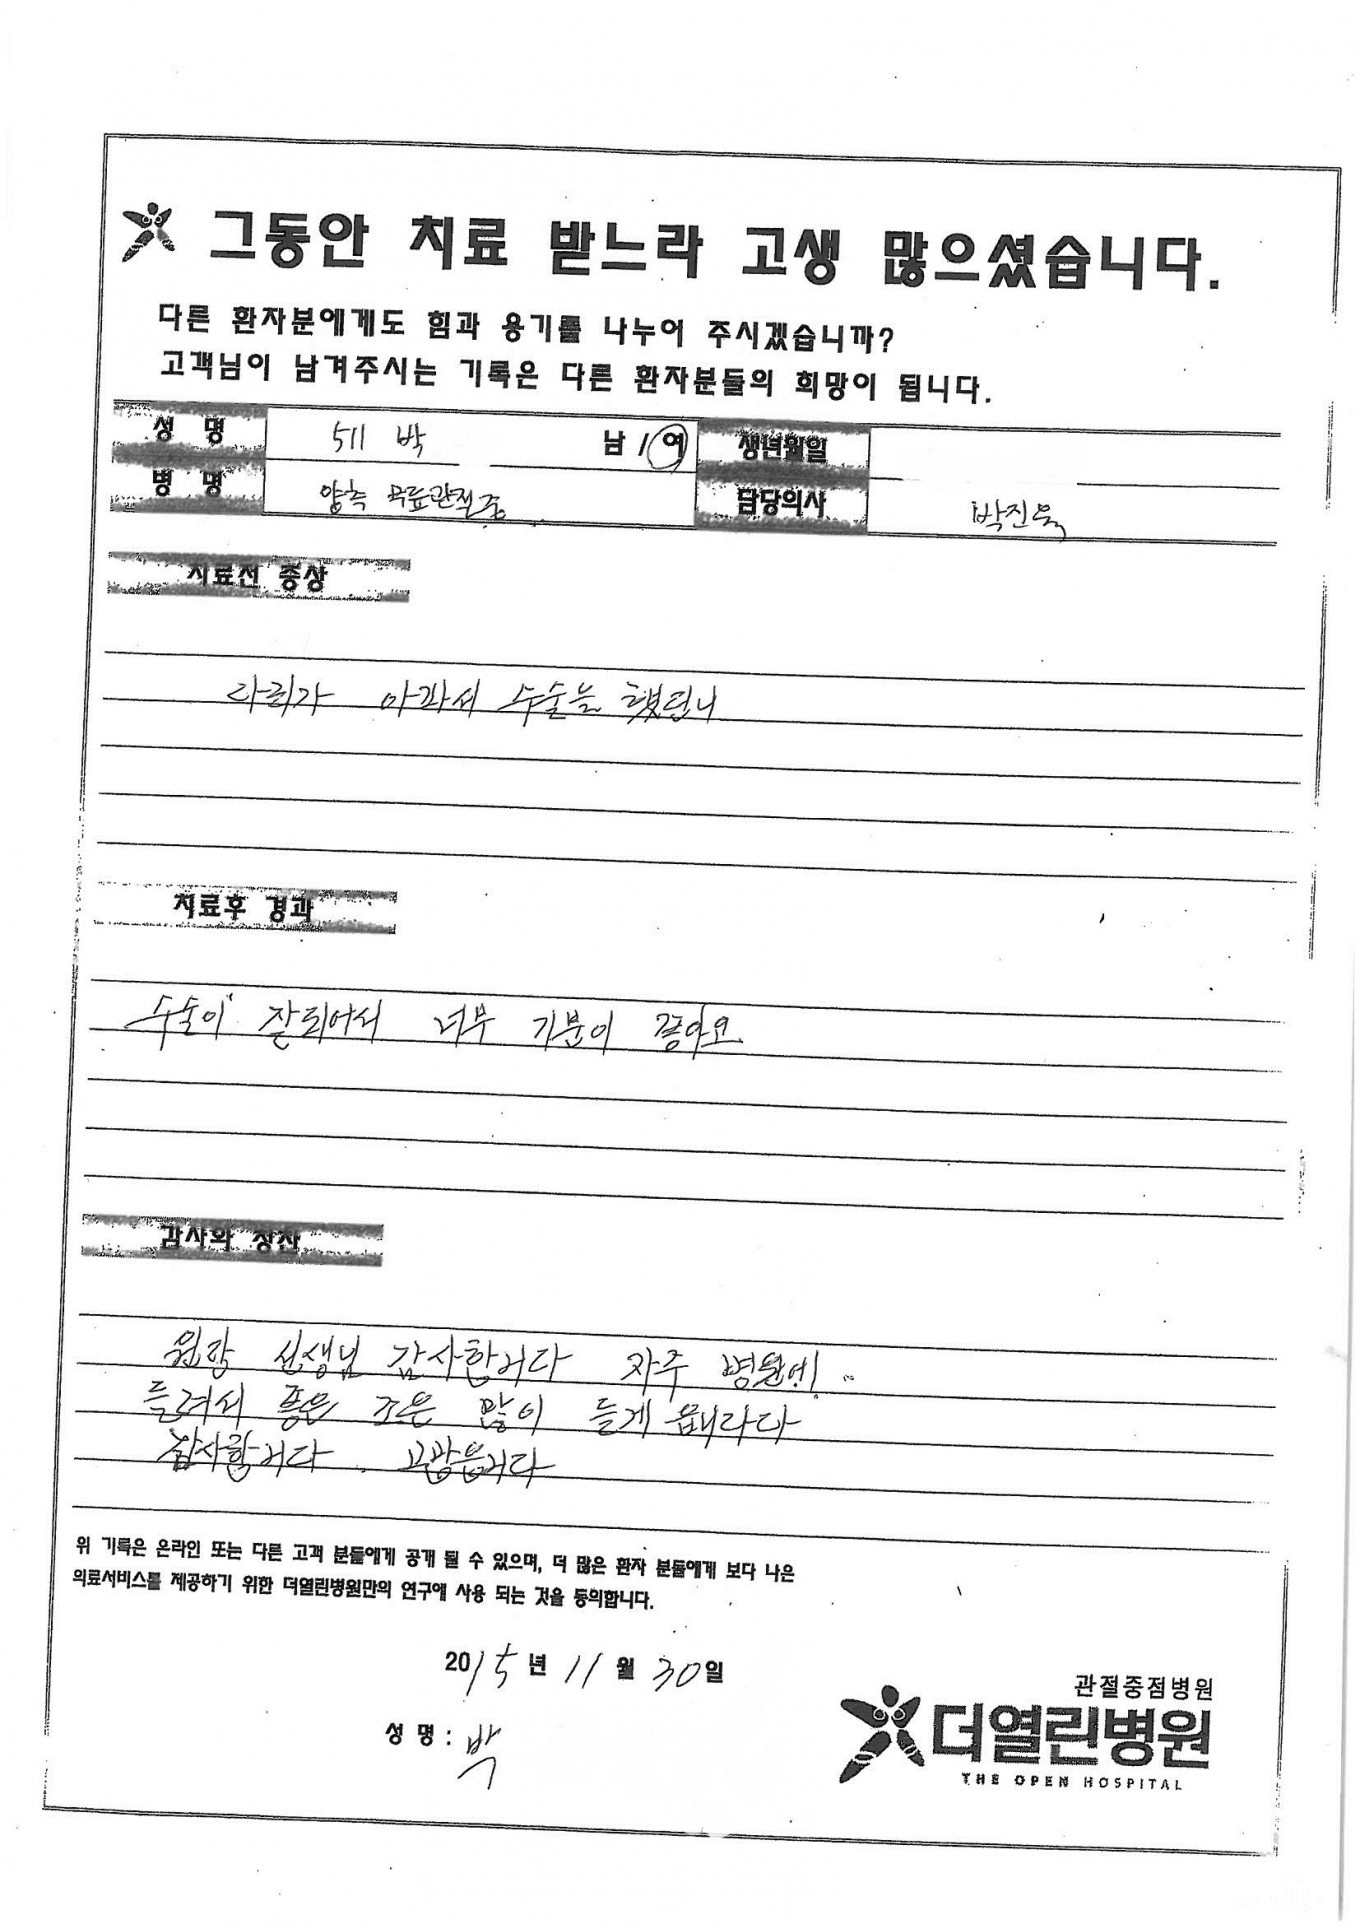 그동안 치료 받느라 고생 많으셨습니다.
다른 환자분에게도 힘과 용기를 나누어 주시겠습니까?
고객님이 남겨주시는 기록은 다른 환자분들의 희망이 됩니다.
성 명 511 박 남 / 여 생년월일
병 명 양측 무릎관절증 담당의사 박진욱
치료전 증상
다리가 아파서 수술을 했더니
치료후 경과
수술이 잘되어서 너무 기분이 좋아요
감사와 칭찬
원장 선생님 감사합니다 자주 병원에
들려서 좋은 조은 많이 듣게
감사합니다. 고맙습니다
위 기록은 온라인 또는 다른 고객 분들에게 공개 될 수 있으며, 더 많은 환자 분들에게 보다 나은
의료서비스를 제공하기 위한 더열린병원만의 연구에 사용 되는 것을 동의합니다.
2015년 11월 30일
성 명 : 박
관절중점병원
더열린병원
THE OPEN HOSPITAL